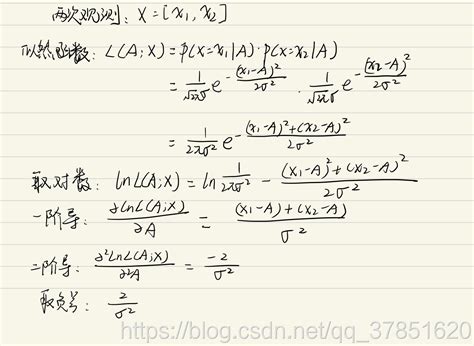 两次观测: X=[x₁, x₂]
似然函数: L(A;X) = p(x=x₁|A)·p(x=x₂|A)
= 1/(√2πσ) e^(-(x₁-A)²/2σ²) · 1/(√2πσ) e^(-(x₂-A)²/2σ²)
= 1/(2πσ²) e^(-((x₁-A)²+(x₂-A)²)/2σ²)
取对数: lnL(A;X) = ln 1/(2πσ²) - ((x₁-A)²+(x₂-A)²)/2σ²
一阶导: ∂lnL(A;X)/∂A = ((x₁-A)+(x₂-A))/σ²
二阶导: ∂²lnL(A;X)/∂²A = -2/σ²
取负号: 2/σ²
https://blog.csdn.net/qq_37851620